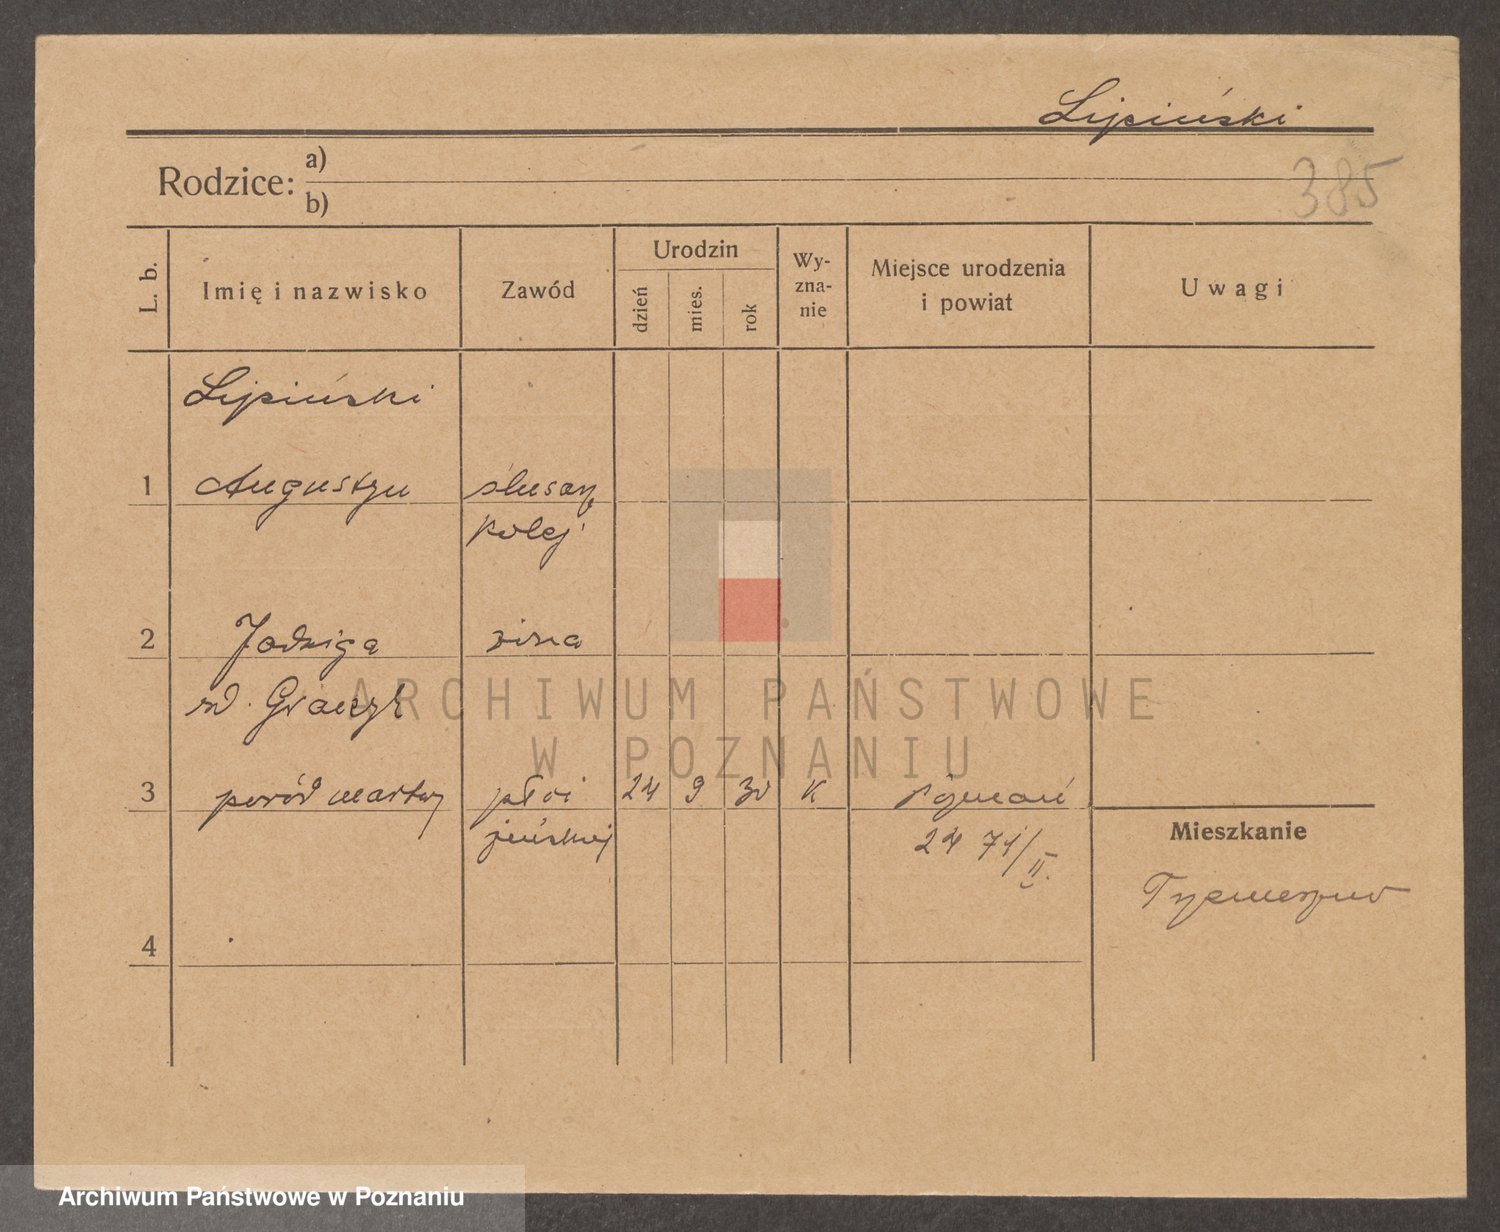 Lipiński
385
Rodzice: a)
b)
L. b.
Imię i nazwisko
Zawód
Urodzin
dzień
mies.
rok
Wy-
zna-
nie
Miejsce urodzenia
i powiat
Uwagi
Lipiński
1 Augustyn ślusarz
kolej
2 Jadwiga żona
ARCHIWUM PAŃSTWOWE
W POZNANIU
3 poród martwy płci 24 9 30 K Poznań
żeńskiej
24 71/II.
Mieszkanie
4
Archiwum Państwowe w Poznaniu